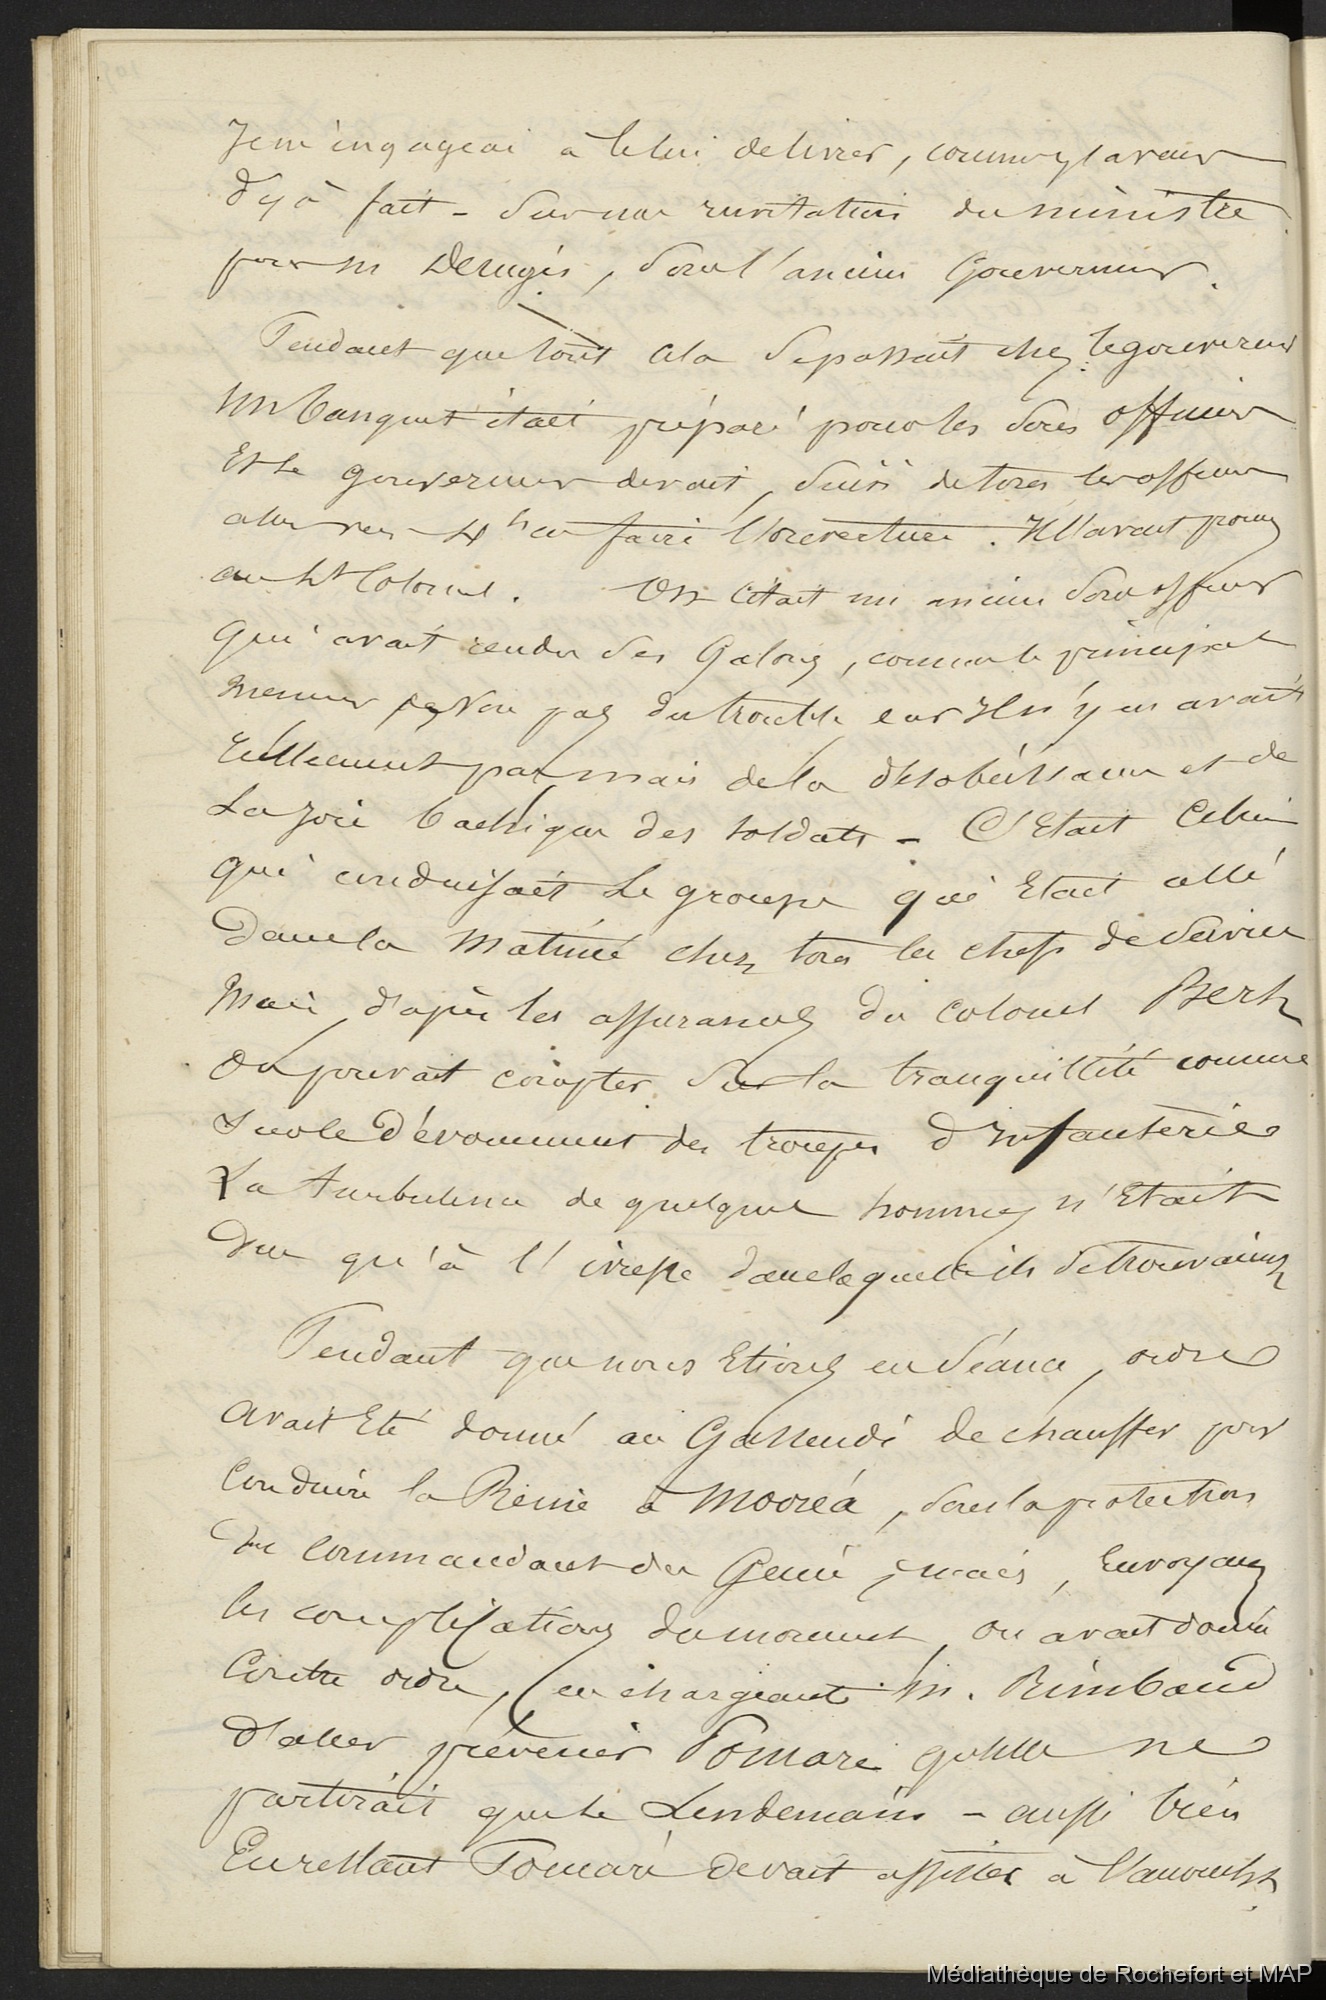 Je m'engageai à le lui delivrer, comme je l'avais
déjà fait - sur une invitation du ministre
pour M , sous l'ancien Gouverneur.
Pendant que tout cela se passait chez le gouverneur
Un banquet était préparé pour les sous officiers
Et le gouverneur devait, suivi de tous les officiers
aller vers 4 h en faire l'ouverture. Il l'avait promis
au Lt Colonel. On citait un ancien sous officier
qui avait rendu ses Galons, comme le principal
meneur Non pas du trouble car Il n'y en avait
réellement pas mais de la désobéissance et de
La joie bachique des soldats - C'Etait Celui
qui conduisait Le groupe qui Etait allé
Dans la Matinée chez tous les chefs de Service
Mais d'après les assurances du colonel
On pouvait compter sur la tranquillité comme
Sur le dévouement des troupes d'Infanterie
La turbulence de quelques hommes n'Etait
Due qu'à l'ivresse dans laquelle ils se trouvaient
Pendant que nous Etions en séance, ordre
Avait Eté donné au Gassendi de chauffer pour
Conduire la Reine à Mooréa, sous la protection
Du commandant du Génie, mais, En voyant
les complications du moment, on avait donné
Contre ordre, en chargeant M. Rimbaud
d'aller prévenir Pomaré qu'Elle ne
partirait que le Lendemain - aussi bien
En restant Pomaré devait assister à
Médiathèque de Rochefort et MAP